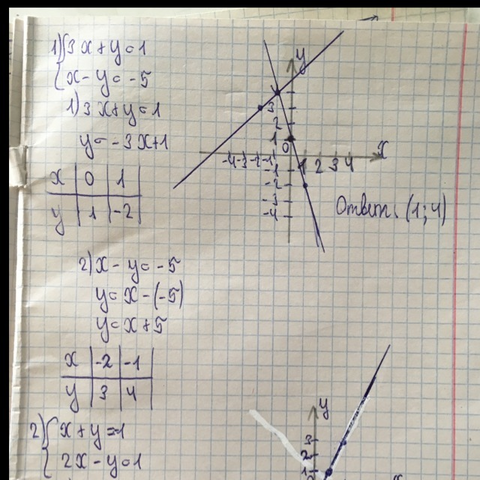 1) { 3x + y = 1
x - y = -5
1) 3x + y = 1
y = -3x+1
x | 0 | 1
y | 1 | -2
y
3
2
1
0
-4 -3 -2 -1
1 2 3 4
x
-1
-2
-3
-4
Ответ: (1; 4)
2) x - y = -5
y = x - (-5)
y = x + 5
x | -2 | -1
y | 3 | 4
2) { x + y = -1
2x - y = 1
y
3
2
1
x